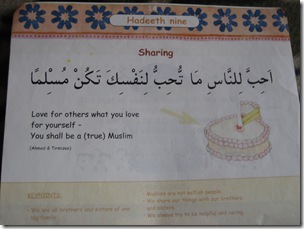 Hadeeth nine
Sharing
اَحِبَّ لِلنَّاسِ مَا تُحِبُّ لِنَفْسِكَ تَكُنْ مُسْلِمًا
Love for others what you love
for yourself –
You shall be a (true) Muslim
(Ahmad & Tirmizee)
- We are all brothers and sisters of one
big family.
- Muslims are not selfish people.
- We share our things with our brothers
and sisters.
- We always try to be helpful and caring.